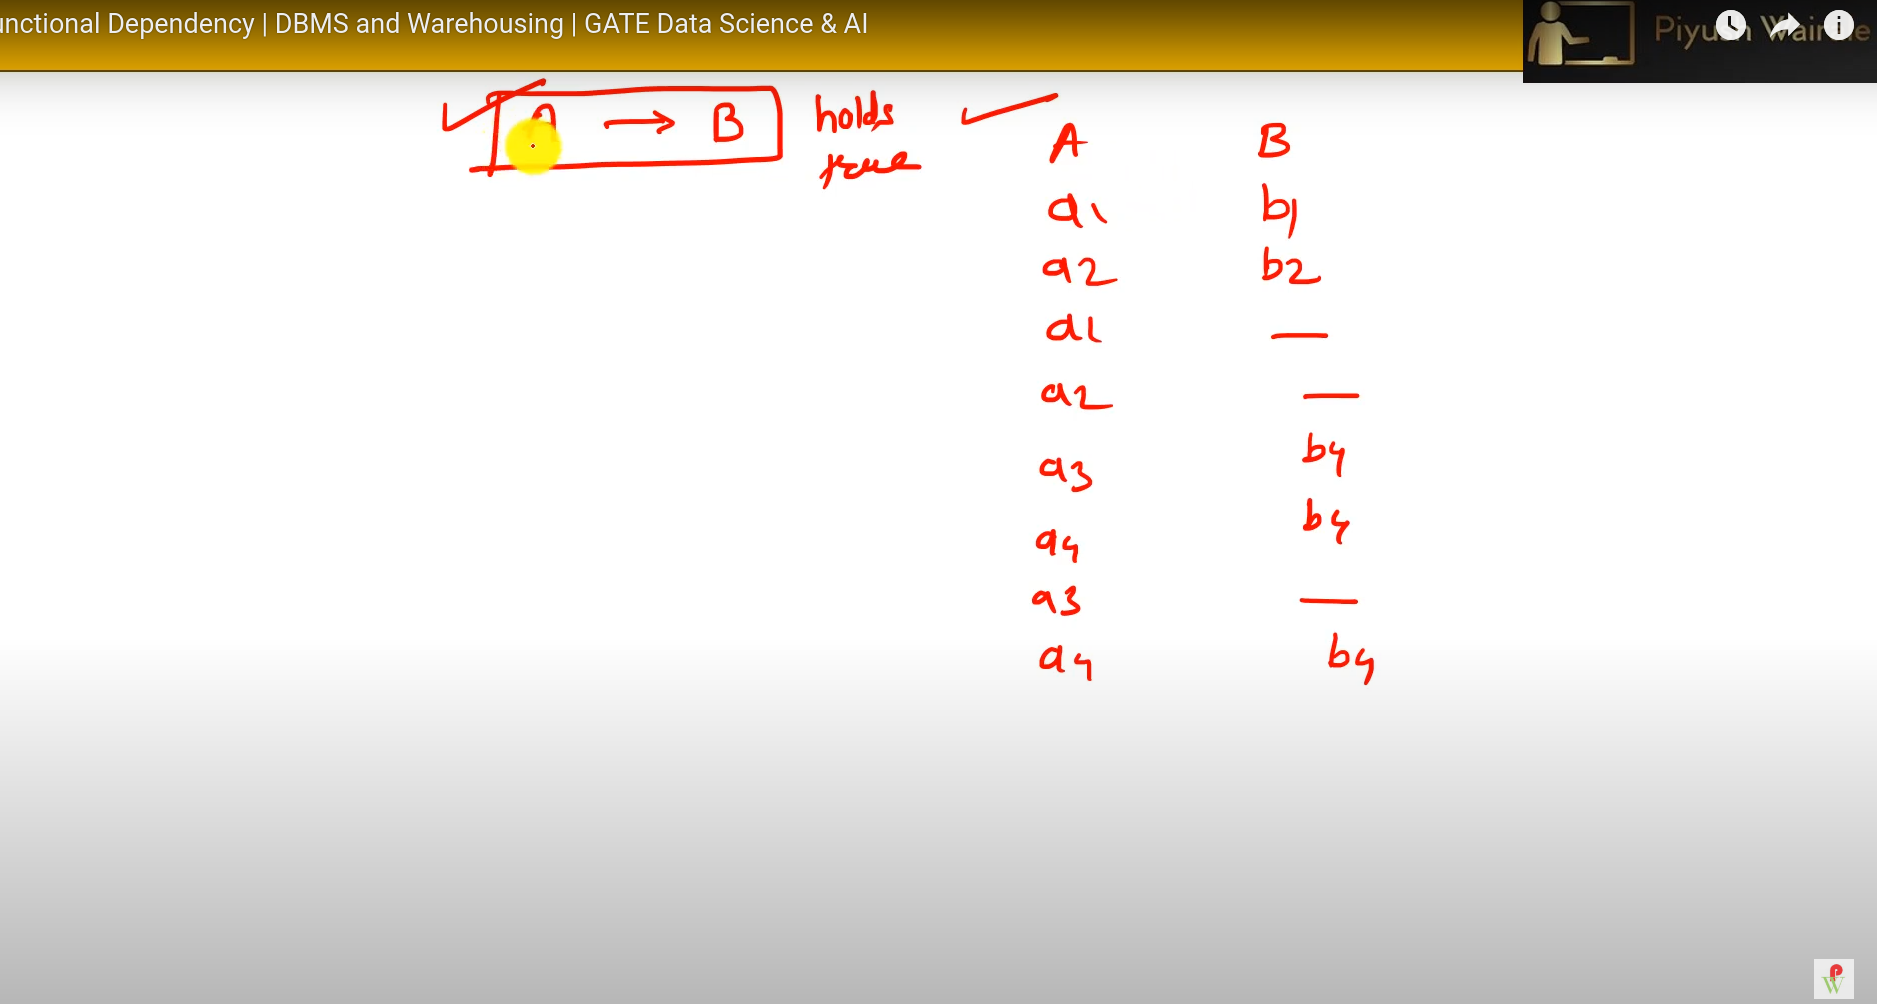 unctional Dependency | DBMS and Warehousing | GATE Data Science & AI
Piyush Wairale
A → B holds true
A B
a1 b1
a2 b2
a1 —
a2 —
a3 b4
a4 b4
a3 —
a4 b4